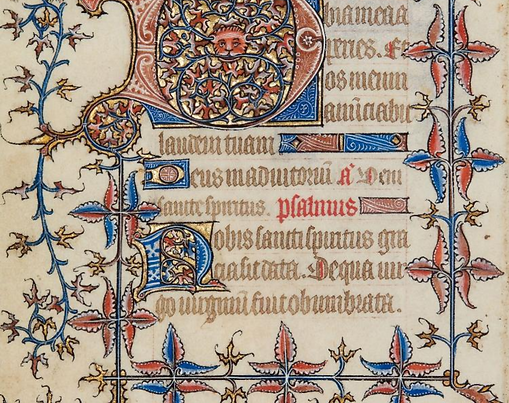 bia mea a
peries. Et
os meum
annūciabit
laudem tuam
Deus in adiutoriū. a Veni
sancte spiritus. psalmus
Nobis sancti spiritus gra
cia sit data. De qua uir
go uirginū fuit obumbrata.